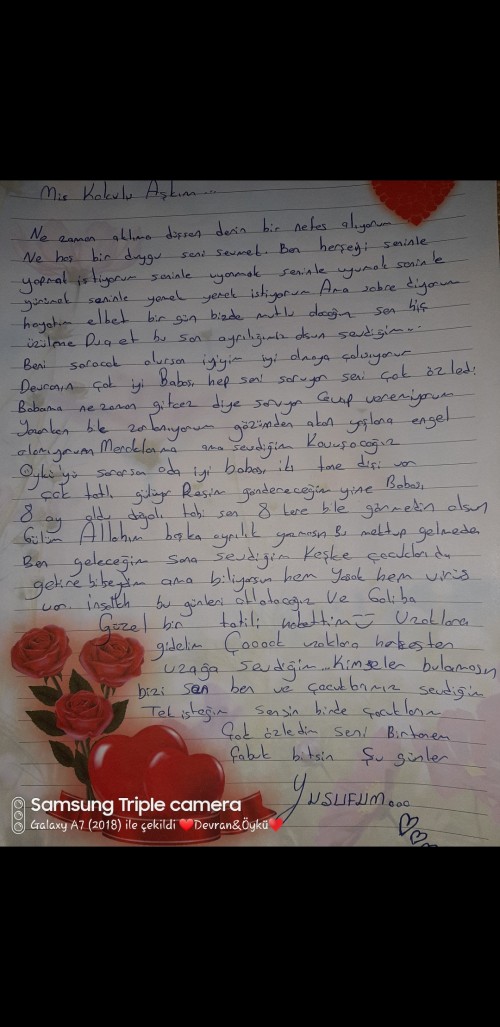 Mis Kokulu Aşkım...
Ne zaman aklıma düşsen derin bir nefes alıyorum
Ne hoş bir duygu seni sevmek. Ben herşeyi seninle
yapmak istiyorum seninle uyanmak seninle uyumak seninle
yürümek seninle yemek yemek istiyorum Ama sabre diyorum
hayatım elbet bir gün bizde mutlu olacağız sen hiç
üzülme Dua et bu son ayrılığımız olsun sevdiğim...
Beni soracak olursan iyiyim iyi olmaya çalışıyorum
Devranın çok iyi Babası hep seni soruyor seni çok özledi
Babama ne zaman gitcez diye soruyor Cevap veremiyorum
Yazarken bile zorlanıyorum gözümden akan yaşlara engel
olamıyorum Meraklanma ama sevdiğim Kavuşacağız
Öykü'yü sorarsan oda iyi babası iki tane dişi var
çok tatlı gülüyor Resim göndereceğim yine Babası
8 ay oldu doğalı tabi sen 8 kere bile görmedin olsun
Gülüm Allahım başka ayrılık yazmasın Bu mektup gelmeden
Ben geleceğim sana sevdiğim Keşke çocukları da
getirebilseydim ama biliyorsun hem Yasak hem virüs
var. inşallah bu günleri atlatacağız Ve Galiba
Güzel bir tatili hakettim Uzaklara
gidelim Çooook uzaklara herkesten
uzağa sevdiğim... Kimseler bulamasın
bizi sen ben ve çocuklarımız sevdiğim
Tek isteğim sensin birde çocuklarım
Çok özledim seni Birtanem
Çabuk bitsin Şu günler
YUSUFUM...
Samsung Triple camera
Galaxy A7 (2018) ile çekildi ❤️Devran&Öykü❤️